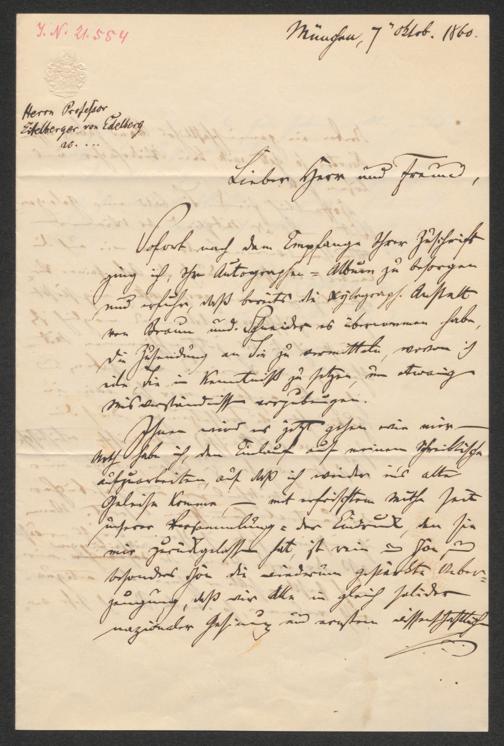 J. N. 21.584
München, 7ⁿ Oktob. 1860.
Herrn Professor
Eitelberger von Edelberg
Lieber Herr und Freund,
Sofort nach dem Empfange Ihrer Zuschrift
ging ich, Ihr Autographen = Album zu besorgen
und erfuhr, daß bereits die xylograph. Anstalt
von Braun und Schneider es übernommen habe,
die Zusendung an Sie zu vermitteln, wovon ich
eile, Sie in Kenntniß zu setzen, um etwaigen
Mißverständnissen vorzubeugen.
Ihnen wird es jetzt gehen wie mir —
habe ich den Einlauf auf meinem Schreibtische
aufzuarbeiten, auf daß ich wieder in's alte
Geleise komme, — mit erfrischtem seit
unserer Versammlung = der Eindruck, den sie
mir zurückgelassen hat, ist rein und schön und
besonders schön die wiederum gestärkte Ueber-
zeugung, daß wir Alle in gleich solider
nazionaler Gesinnung und ernstem wissenschaftlichen